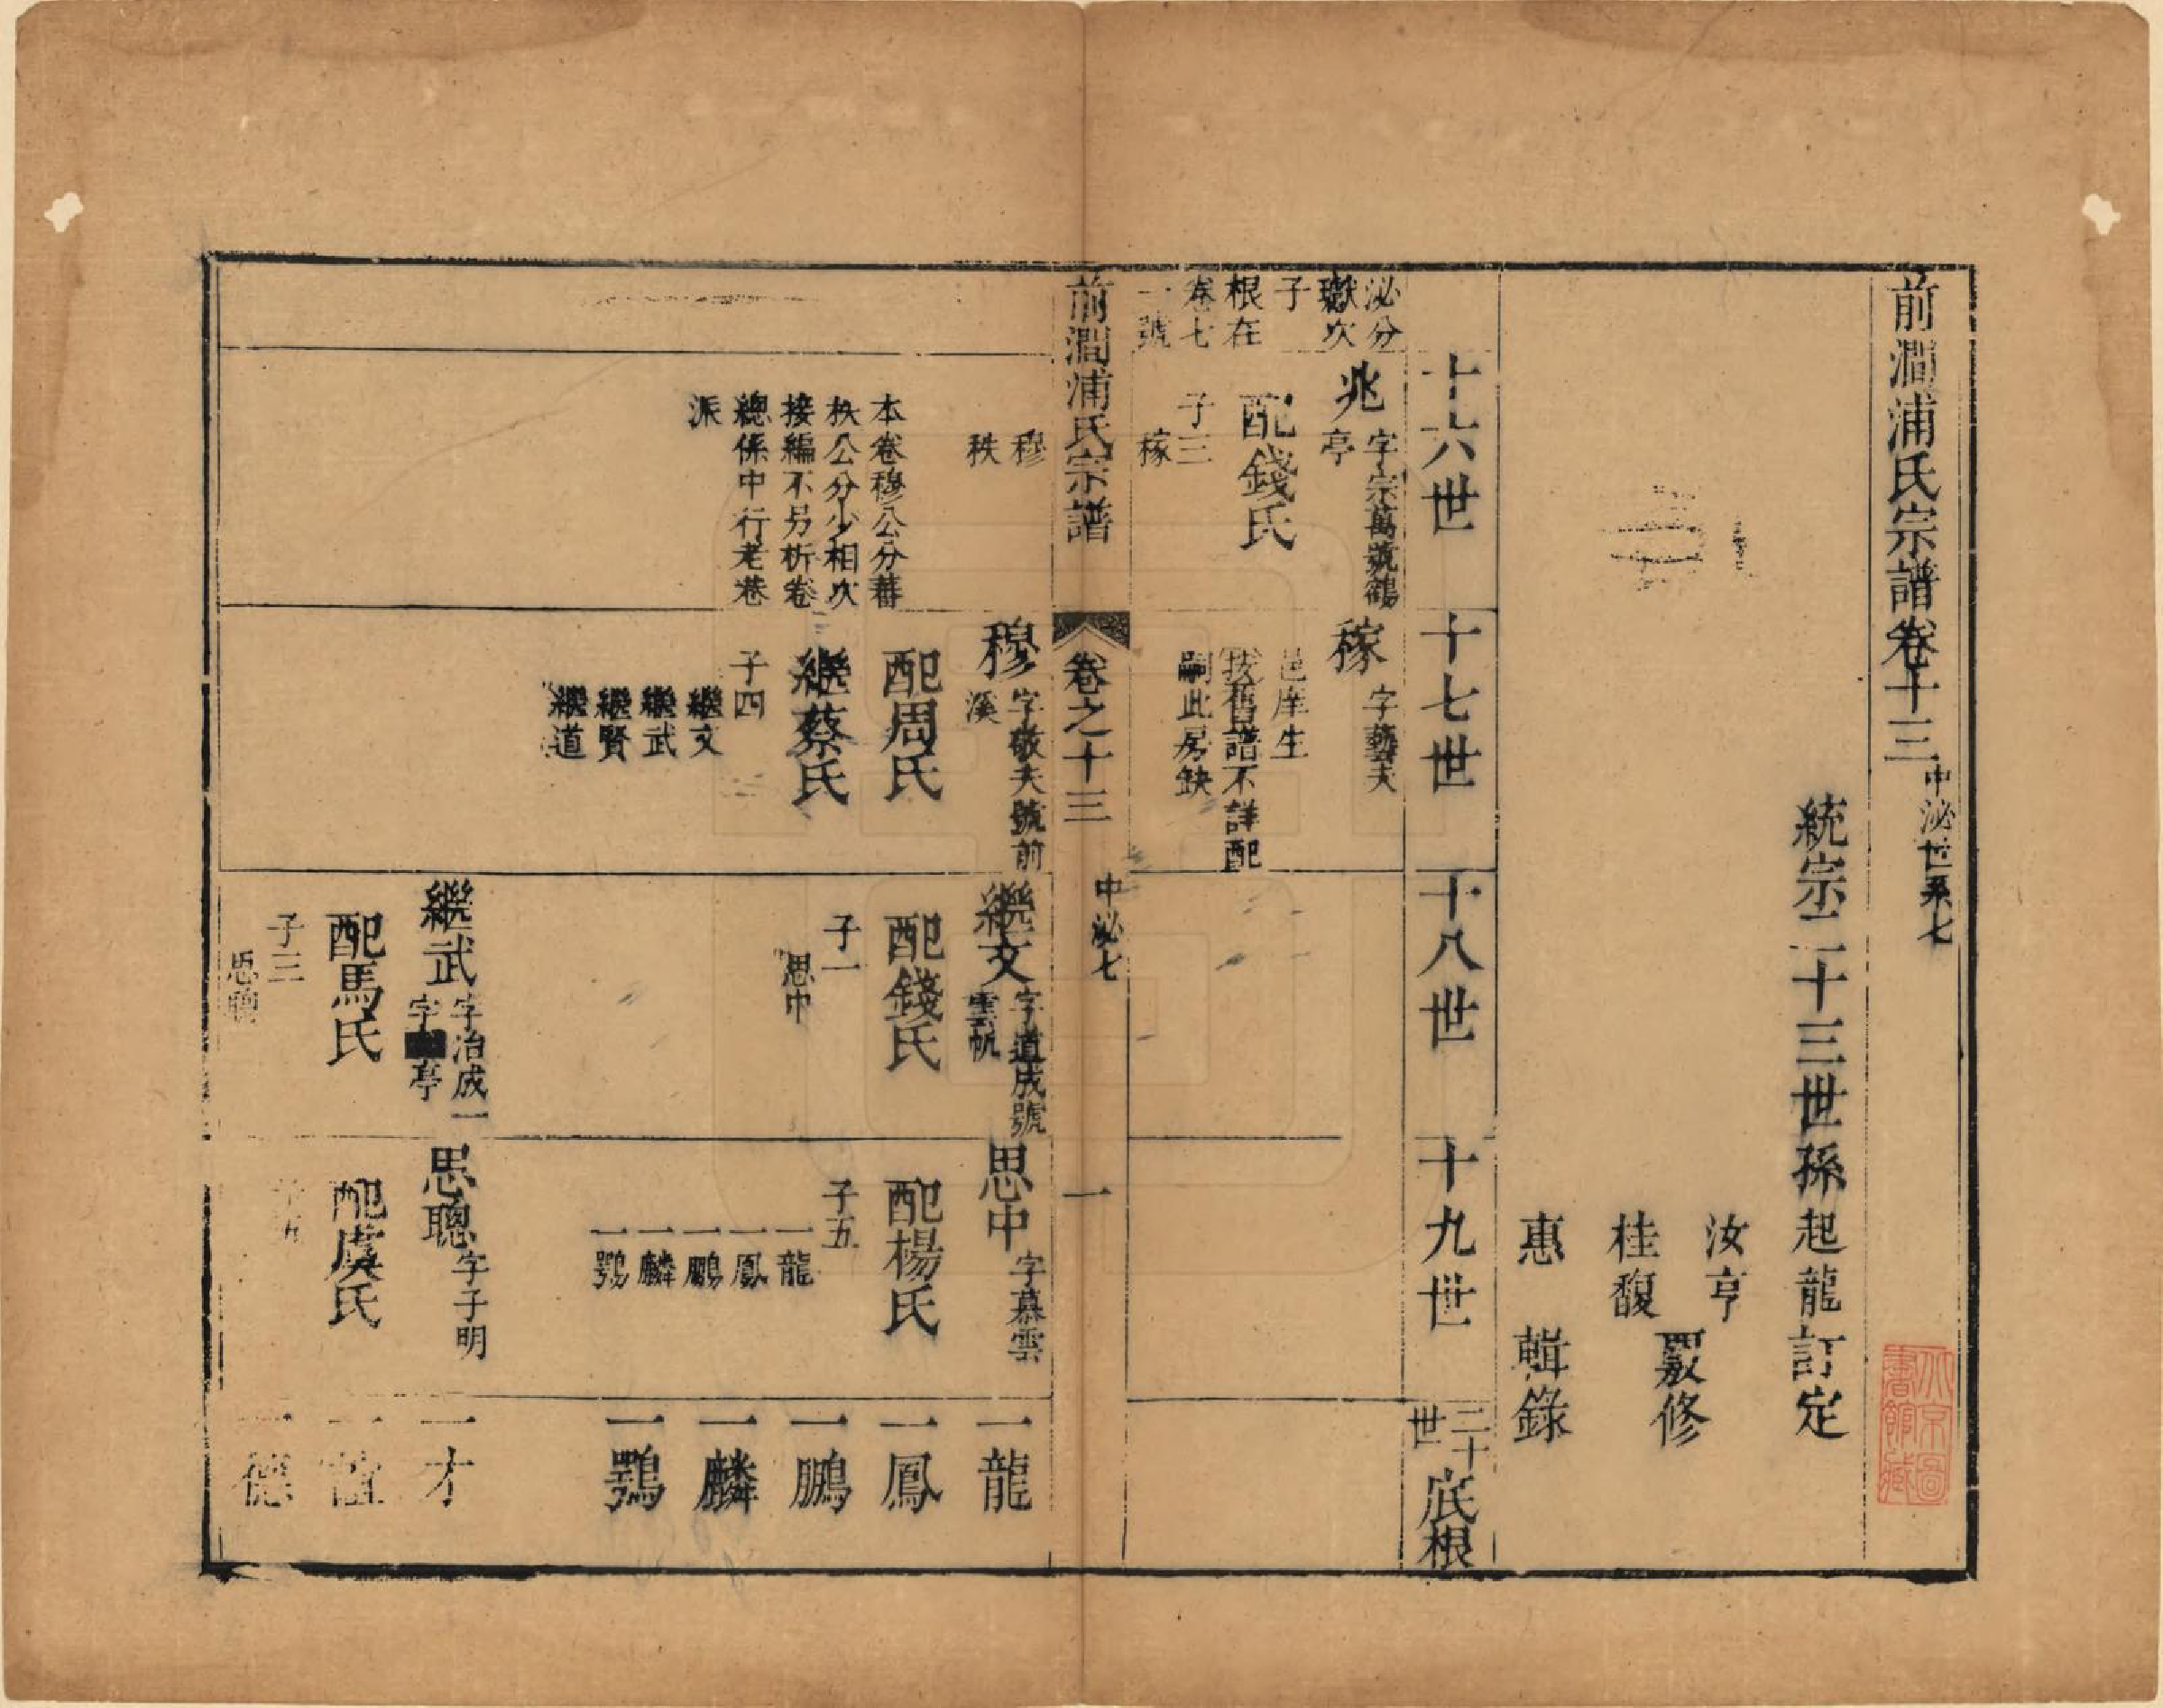 前澗浦氏宗譜卷十三 中泌世系七
統宗二十三世孫起龍訂定
汝亨
桂馥 覈修
惠 輯錄
十六世 十七世 十八世 十九世 二十世 底根
泌分
獻次
子
根在
卷七
一號
兆 字宗萬號鶴
亭
配錢氏
子三
稼
稼 字藝夫
邑庠生
按舊譜不詳配
嗣此房缺
前澗浦氏宗譜 卷之十三 中泌七 一
穆
秩
本卷穆公分蕃
秩公分少相次
接編不另析卷
總係中行老巷
派
穆 字敬夫號前
溪
配周氏
繼蔡氏
子四
繼文
繼武
繼賢
繼道
繼文 字道成號
雲帆
配錢氏
子一
思中
繼武 字治成一
字 亭
配馬氏
子三
思聰
思中 字慕雲
配楊氏
子五
一龍
一鳳
一鵬
一麟
一鶚
思聰 字子明
配虞氏
一龍
一鳳
一鵬
一麟
一鶚
一才
一德
北京圖
書館藏